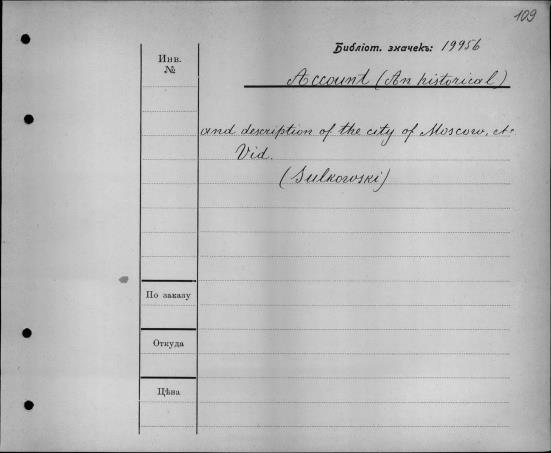 109
Библіот. значекъ: 19956
Инв. №
Account (An historical)
and description of the city of Moscow, etc
Vid.
(Sulkowski)
По заказу
Откуда
Цѣна